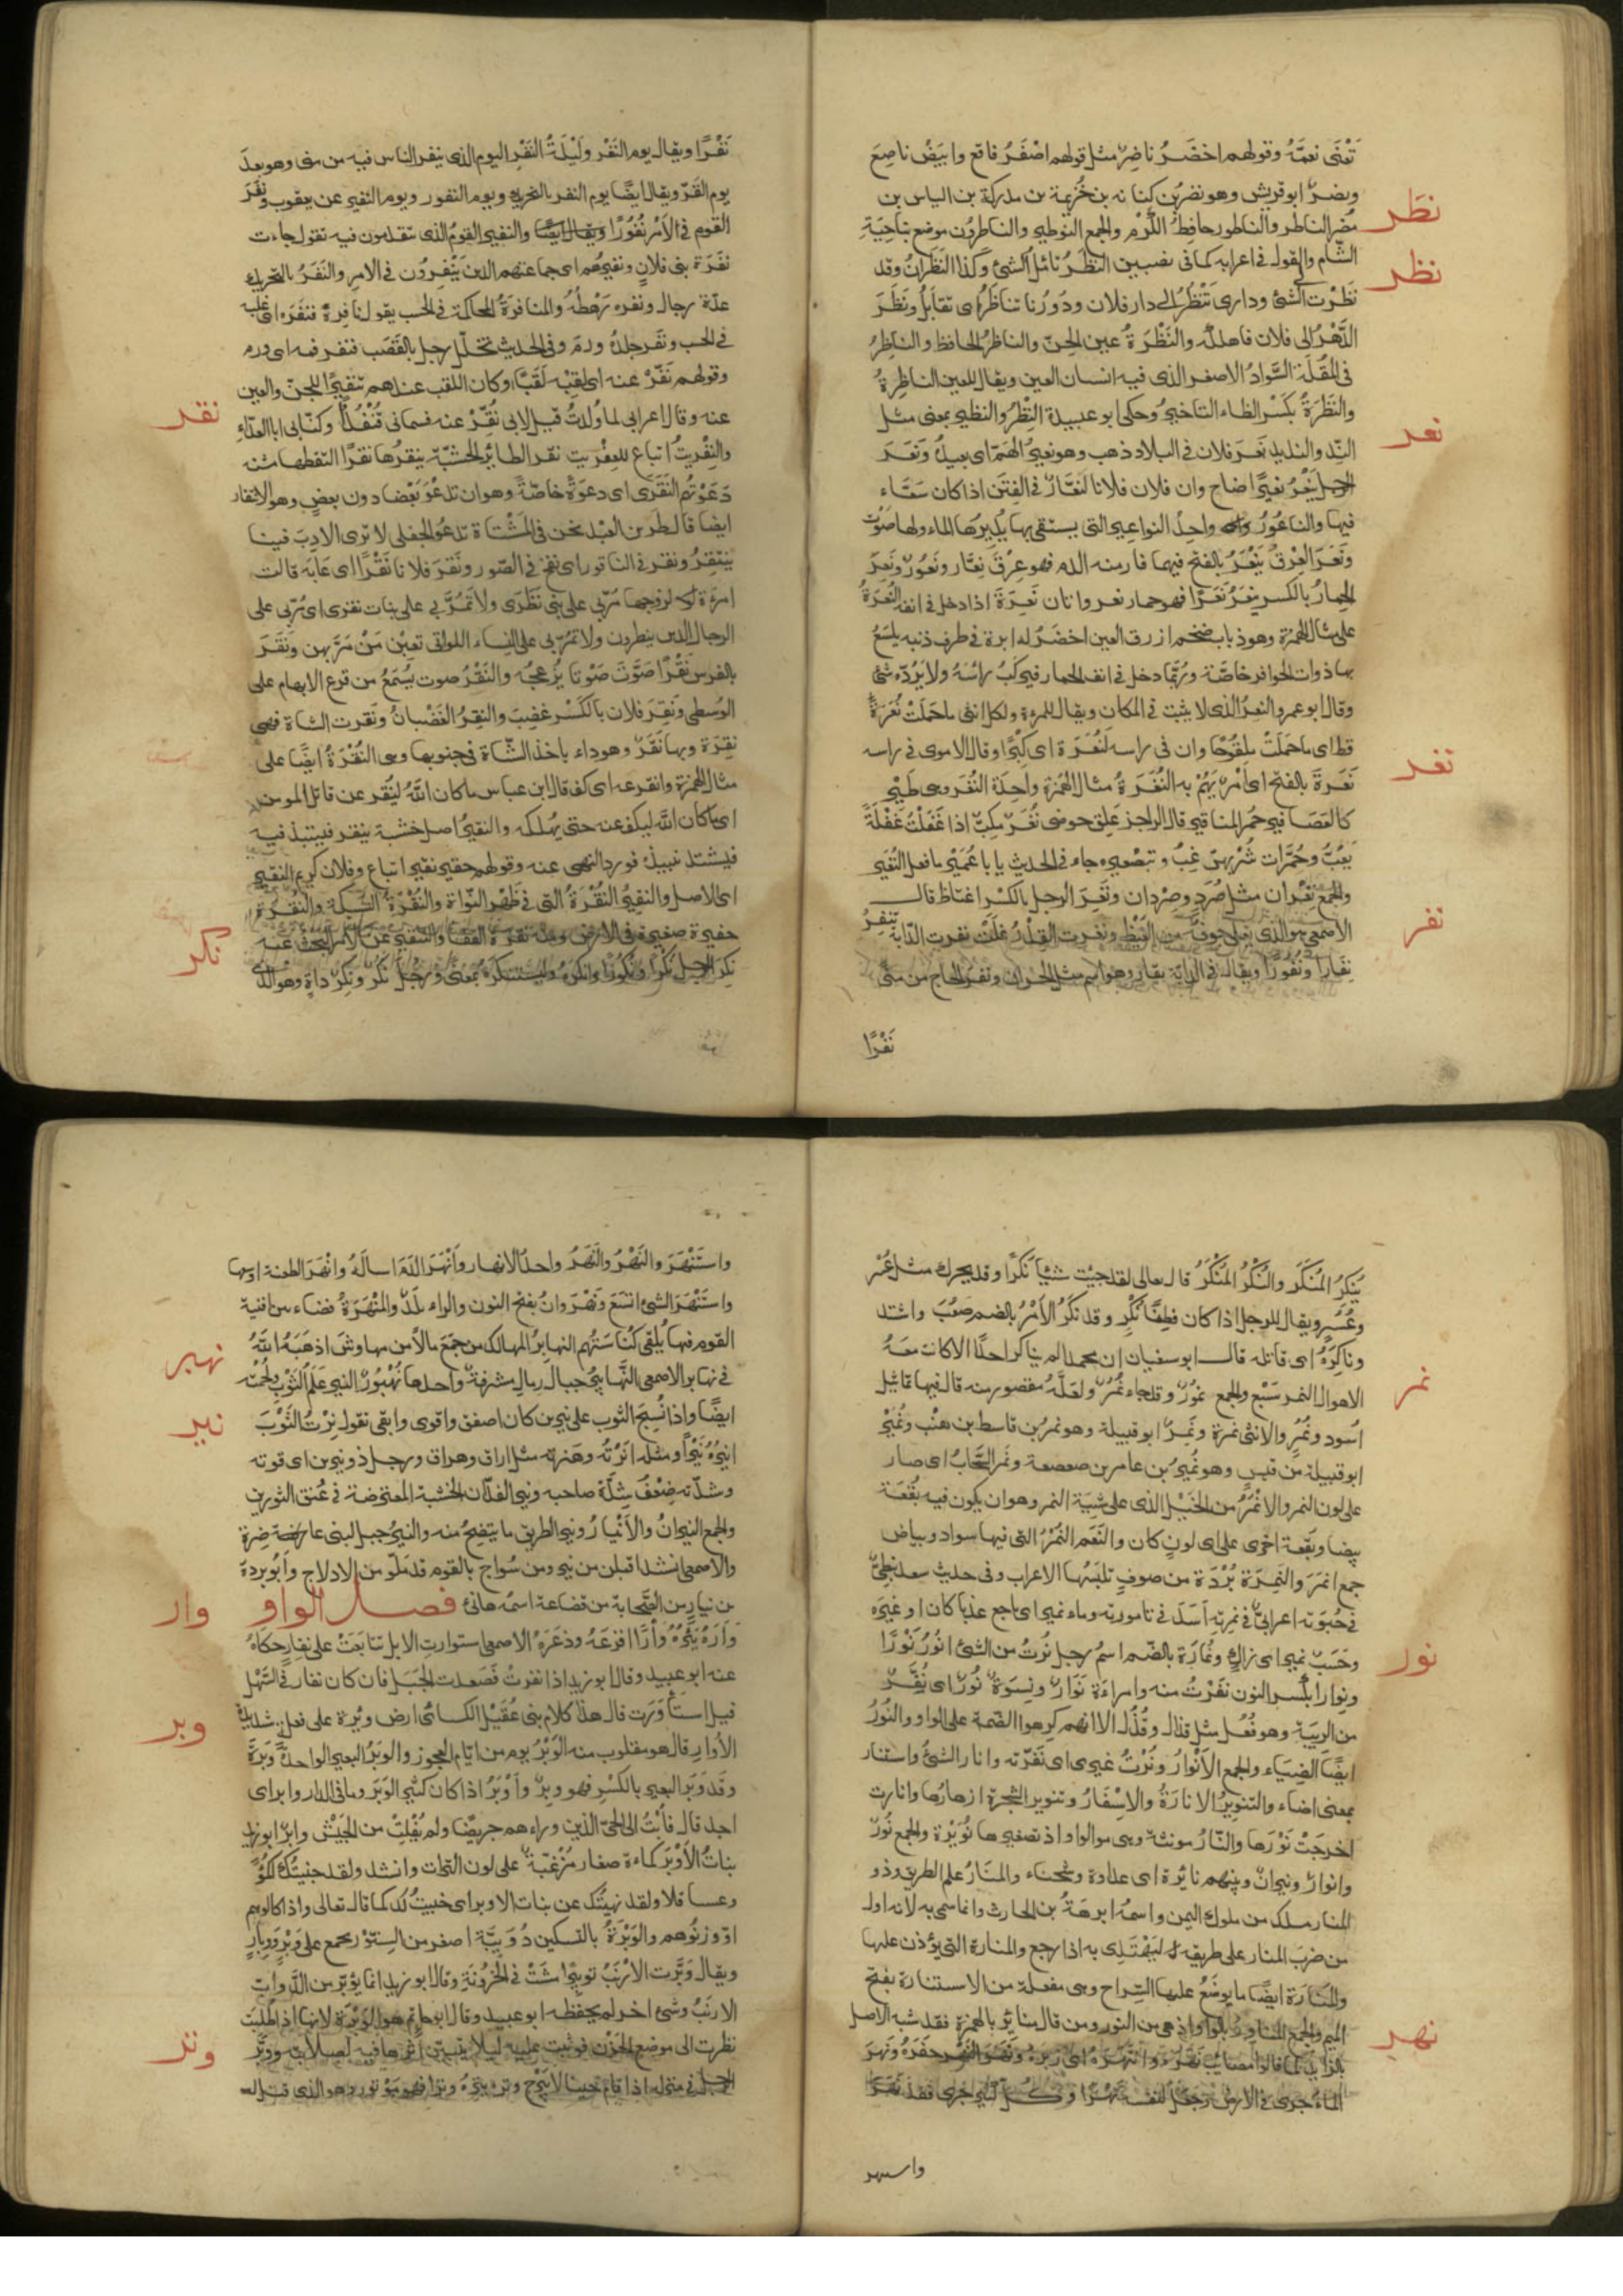 تغنى نعمة وقولهم اخضر ناضر مثل قولهم اصفر فاقع وابيض ناصع
نطر
ونضر ابو قريش وهو نضر بن كنانه بن خزيمة بن مدركة بن الياس بن
مضر الناطر والناطور حافظ الكرم والجمع النواطير والناطرون موضع بناحية
نظر
الشام والقول في اعرابه كما في نصيبين النظر تأمل الشئ وكذا النظران وقد
نظرت الى الشئ ودارى تنظر الى دار فلان ودورنا تناظر اى تقابل ونظر
الدهر الى فلان فاهلكه والنظرة عين الجن والناظر الحافظ والناظر
فى المقلة السواد الاصغر الذى فيه انسان العين ويقال للعين الناظرة
والنظرة بكسر الظاء التاخير وحكى ابو عبيدة النظر والنظير بمعنى مثل
نعر
الند والنديد نعر فلان فى البلاد ذهب وهو نعير الهم اى بعيد ونعر
الرجل ينعر نعيرا صاح وان فلان فلانا لنعار فى الفتن اذا كان سعاء
فيها والناعور واحد النواعير التى يستقى بها يديرها الماء ولها صوت
ونعر العرق ينعر بالفتح فيهما فار منه الدم فهو عرق نعار ونعور ونعر
الحمار بالكسر ينعر نعرا فهو حمار نعر واتان نعرة اذا دخل فى انفه النعرة
على مثال الهمزة وهو ذباب ضخم ازرق العين اخضر له ابرة فى طرف ذنبه يلسع
بها ذوات الحوافر خاصة وربما دخل فى انف الحمار فيركب راسه ولا يرده شئ
وقال ابو عمرو النعر الذى لا يثبت فى المكان ويقال للمرءة ولكل انثى ما حملت نعرة
قط اى ما حملت ملقوحا وان فى راسه لنعرة اى كبرا وقال الاموى فى راسه
نغر
نعرة بالفتح اى امر يهم به النغرة مثال الهمزة واحدة النغر وهى طير
كالعصافير حمر المناقير قال الراجز علق حوضى نغر مكب اذا غفلت غفلة
يعب وحمرات شربهن غب وبتصغيره جاء فى الحديث يا ابا عمير ما فعل النغير
والجمع نغران مثل صرد وصردان ونغر الرجل بالكسر اغتاظ قال
نفر
الاصمعى هو الذى يغلى جوفه من الغيظ ونغرت القدر غلت نفرت الدابة تنفر
نفارا ونفورا ويقال فى الدابة نفار وهو اسم مثل الحران ونفر الحاج من منى
نفرا
نفرا ويقال يوم النفر وليلة النفر اليوم الذى ينفر الناس فيه من منى وهو بعد
يوم القر ويقال ايضا يوم النفر بالتحريك ويوم النفور ويوم النفير عن يعقوب ونفر
القوم فى الامر نفورا والنفير القوم الذى يتقدمون فيه تقول جاءت
نفرة بنى فلان ونفيرهم اى جماعتهم الذين ينفرون فى الامر والنفر بالتحريك
عدة رجال ونفره رهطه والمنافرة المحاكمة فى الحسب يقول نافره فنفره اى غلبه
فى الحسب ونفر جلده ورم وفى الحديث تخلل رجل بالقصب فنفر فمه اى ورم
وقولهم نفر عنه اى لقبه لقبا وكان اللقب عندهم تنفيرا للجن والعين
عنه وقال اعرابى لما ولدت قيل لابى نفر عنه فسمانى قنفذا وكنانى ابا العداء
نقر
والنفريت اتباع للعفريت نقر الطاير الحبة ينقرها نقرا التقطها منه
دعوتهم النقرى اى دعوة خاصة وهو ان تدعو بعضا دون بعض وهو الانتقار
ايضا قال طرفة بن العبد نحن فى المشتاة ندعو الجفلى لا ترى الادب فينا
ينتقر ونقر فى الناقور اى نفخ فى الصور ونقر فلانا نقرا اى عابه قالت
امرءة لزوجها مر بى على بنى نظرى ولا تمر بى على بنات نقرى اى مر بى على
الرجال الذين ينظرون ولا تمر بى على النساء اللواتى تعبن من مر بهن ونقر
بالفرس نقرا صوت صوتا يزعجه والنقر صوت يسمع من قرع الابهام على
الوسطى ونقر فلان بالكسر غضب والنقر الغضبان ونقرت الشاة فهى
نقرة وبها نقر وهو داء ياخذ الشاة فى جنوبها وهى النقرة ايضا على
مثال الهمزة وانقر عنه اى كف قال ابن عباس ما كان الله لينقر عن قاتل المومن
اى ما كان الله ليكف عنه حتى يهلكه والنقير اصل خشبة ينقر فينبذ فيه
فيشتد نبيذه فورد النهى عنه وقولهم حقير نقير اتباع وفلان كريم النقير
اى الاصل والنقير النقرة التى فى ظهر النواة والنقرة السبيكة والنقرة
حفيرة صغيرة فى الارض ومنه نقرة القفا والتنقير عن الامر البحث عنه
نكر
نكر الرجل نكرا ونكورا وانكره واستنكره بمعنى ورجل نكر ونكر داه وهو الذى
ينكر المنكر والنكر المنكر قال تعالى لقد جئت شئيا نكرا وقد يحرك مثل عسر
وعسر ويقال للرجل اذا كان فطنا نكر وقد نكر الامر بالضم صعب واشتد
وناكره اى قاتله قال ابو سفيان ان محمدا لم يناكر احدا الا كانت معه
نمر
الاهوال النمر سبع والجمع نمور وقد جاء نمر ولعله مقصور منه قال فيها تماثيل
اسود ونمر والانثى نمرة ونمر ابو قبيلة وهو نمر بن قاسط بن هنب ونمير
ابو قبيلة من قيس وهو نمير بن عامر بن صعصعة ونمر السحاب اى صار
على لون النمر والانمر من الخيل الذى على شية النمر وهو ان يكون فيه بقعة
بيضا وبقعة اخرى على اى لون كان والنعم النمر التى فيها سواد وبياض
جمع انمر والنمرة بردة من صوف تلبسها الاعراب وفى حديث سعد نبطى
فى حبوته اعرابى فى نمرته اسد فى تامورته وماء نمير اى ناجع عذبا كان او غيره
نور
وحسب نمير اى زاك ونمارة بالضم اسم رجل نرت من الشئ انور نورا
ونوارا بكسر النون نفرت منه وامراءة نوار ونسوة نور اى نفر
من الريبة وهو فعل مثل قذال وقذل الا انهم كرهوا الضمة على الواو والنور
ايضا الضياء والجمع الانوار ونرت غيرى اى نفرته وانار الشئ واستنار
بمعنى اضاء والتنوير الانارة والاسفار وتنوير الشجرة ازهارها وانارت
اخرجت نورها والنار مونثة وهى من الواو اذ تصغيرها نويرة والجمع نور
وانوار ونيران وبينهم نائرة اى عداوة وشحناء والمنار علم الطريق وذو
المنار ملك من ملوك اليمن واسمه ابرهة بن الحارث وانما سمى به لانه اول
من ضرب المنار على طريقه ليهتدى به اذا رجع والمنارة التى يؤذن عليها
والمنارة ايضا ما يوضع عليها السراج وهى مفعلة من الاستنارة بفتح
الميم والجمع المناور بالواو اذ هى من النور ومن قال منائر بالهمزة فقد شبه الاصل
نهر
بالزايد كما قالوا مصائب نهره وانتهره اى زبره ونهر النهر حفره ونهر
الماء جرى فى الارض وجعل لنفسه نهرا وكل كثير جرى فقد نهر
واستنهر
واستنهر والنهر والنهر واحد الانهار وانهر الدم اساله وانهر الطعنة اوسعها
واستنهر الشئ اتسع ونهروان بفتح النون والراء بلد والمنهرة فضاء بين افنية
نهبر
القوم فيها يلقى كناستهم النهابر المهالك من جمع مالا من مهاوش اذهبه الله
فى نهابر الاصمعى النهابير حبال رمال مشرفة واحدها نهبور النير علم الثوب ولحمته
نير
ايضا واذا نسج الثوب على نيرين كان اصفق واقوى وابقى تقول نرت الثوب
انيره نيرا ومثله انرته وهنرته مثل اراق وهراق ورجل ذو نيرين اى قوته
وشدته ضعف شدة صاحبه ونير الفدان الخشبة المعترضة فى عنق الثورين
والجمع النيران والانيار ونير الطريق ما يتضح منه والنير جبل لبنى عاضرة
والاصمعى انشد اقبلن من نير ومن سواج بالقوم قد ملوا من الادلاج وابو بردة
بن نيار من الصحابة من قضاعة اسمه هانئ فصل الواو
وار
وأره يئره وأرا افزعه وذعره الاصمعى استوارت الابل تتابعت على نفار حكاه
عنه ابو عبيد وقال ابو زيد اذا نفرت فصعدت الجبل فان كان نفار فى السهل
قيل استأورت قال هذا كلام بنى عقيل الكسائى ارض وئرة على فعلة شديدة
وبر
الأوار قال هو مقلوب منه الوبر يوم من ايام العجوز والوبر البعير الواحدة وبرة
وقد وبر البعير بالكسر فهو وبر واوبر اذا كان كثير الوبر وما فى الدار وابر اى
احد قال فأبت الى الحى الذين وراءهم جريضا ولم يفلت من الجيش وابر ابو زيد
بنات الاوبر كماءة صغار مزغبة على لون التراب وانشد ولقد جنيتك اكمؤا
وعساقلا ولقد نهيتك عن بنات الاوبر اى جنيت لك كما قال تعالى واذا كالوهم
او وزنوهم والوبرة بالتسكين دويبة اصغر من السنور تجمع على وبر ووبار
ويقال وبرت الارنب توبيرا مشت فى الحزونة وقال ابو زيد انما يوبر من الدواب
الارنب وشئ اخر لم يحفظه ابو عبيد وقال ابو حاتم هو الوبرة لانها اذا طلبت
وتر
نظرت الى موضع الحزن فوثبت عليه ليلا يتبين اثرها فيه لصلابته ووبر
الرجل فى منزله اذا اقام حينا لا يبرح وتره يتره وترا فهو موتور وهو الذى قتل له